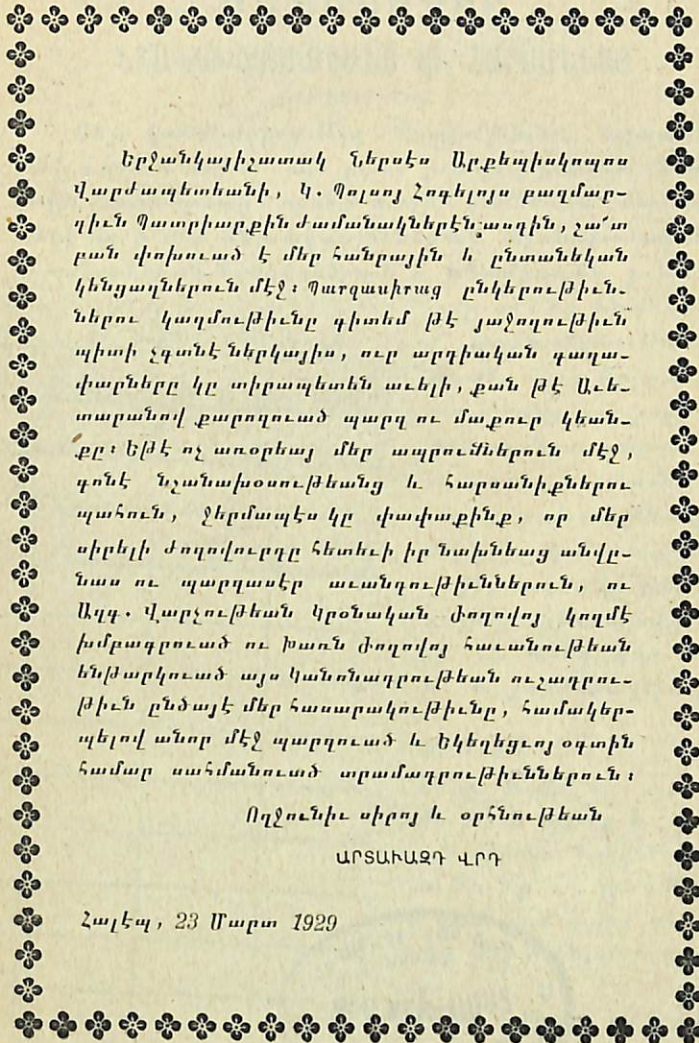 Երջանկայիշատակ Ներսէս Արքեպիսկոպոս
Վարժապետեանի, Կ. Պոլսոյ Հոգելոյս բազմար-
դիւն Պատրիարքին ժամանակներէն ասդին, շա՜տ
բան փոխուած է մեր հանրային և ընտանեկան
կենցաղներուն մէջ։ Պարզասիրաց ընկերութիւն-
ներու կազմութիւնը գիտեմ թէ յաջողութիւն
պիտի չգտնէ ներկայիս, ուր արդիական գաղա-
փարները կը տիրապետեն աւելի, քան թէ Աւե-
տարանով քարոզուած պարզ ու մաքուր կեան-
քը։ Եթէ ոչ առօրեայ մեր ապրումներուն մէջ,
գոնէ նշանախօսութեանց և հարսանիքներու
պահուն, ջերմապէս կը փափաքինք, որ մեր
սիրելի ժողովուրդը հետեւի իր նախնեաց անվը-
նաս ու պարզասէր աւանդութիւններուն, ու
Ազգ. Վարչութեան Կրօնական Ժողովոյ կողմէ
խմբագրուած ու Խառն Ժողովոյ հաւանութեան
ենթարկուած այս Կանոնագրութեան ուշադրու-
թիւն ընծայէ մեր հասարակութիւնը, համակեր-
պելով անոր մէջ պարզուած և Եկեղեցւոյ օգտին
համար սահմանուած տրամադրութիւններուն։
Ողջունիւ սիրոյ և օրհնութեան
ԱՐՏԱՒԱԶԴ ՎՐԴ
Հալէպ, 23 Մարտ 1929